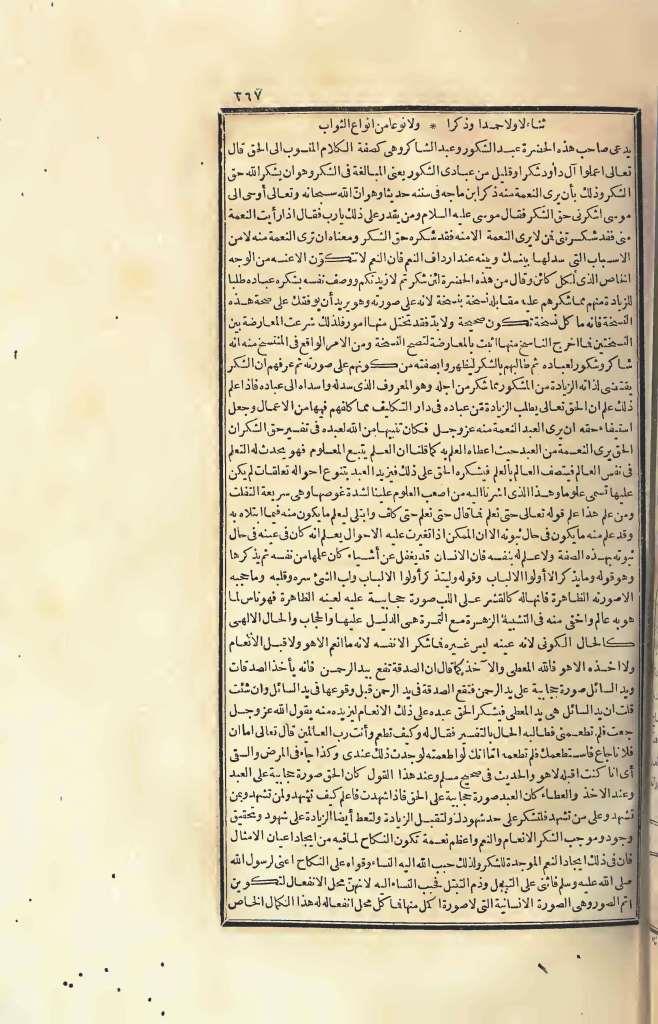 ٣٦٧
ثناء لا ولا حمدا وذكرا * ولا نوعا من انواع الثواب
يدعى صاحب هذه الحضرة عبد الشكور وعبد الشاكر وهى كصفة الكلام المنسوب الى الحق قال
تعالى اعملوا آل داود شكرا وقليل من عبادى الشكور يعنى المبالغة فى الشكر وهو ان يشكر الله حق
الشكر وذلك بأن يرى النعمة منه ذكر ابن ماجه فى سننه حديثا وهو ان الله سبحانه وتعالى أوحى الى
موسى اشكرنى حق الشكر فقال موسى عليه السلام ومن يقدر على ذلك يارب فقال اذا رأيت النعمة
منى فقد شكرتنى فمن لا يرى النعمة الا منه فقد شكره حق الشكر ومعناه ان ترى النعمة منه لا من
الاسباب التى سدلها بينك وبينه عند ارداف النعم فان النعم لا تتكوّن الا عنه من الوجه
الخاص الذى لكل كائن وقال من هذه الحضرة لئن شكرتم لازيدنكم ووصف نفسه بشكره عباده طلبا
للزيادة منهم مما شكرهم عليه مقابلة نسخة بنسخة لانه على صورته وهو يريد أن يوقفك على صحة هذه
النسخة فانه ما كل نسخة تكون صحيحة ولا بد فقد تختل منها امور فلذلك شرعت المعارضة بين
النسختين فما اخرج الناسخ منها أثبت بالمعارضة لتصح النسخة ومن الامر الواقع فى المنتسخ منه انه
شاكر وشكور لعباده ثم طالبهم بالشكر ليظهروا بصفته من كونهم على صورته ثم عرفهم ان الشكر
يقتضى لذاته الزيادة من المشكور مما شكر من اجله وهو المعروف الذى سدله واسداه الى عباده فاذا علم
ذلك علم ان الحق تعالى يطلب الزيادة من عباده فى دار التكليف مما كلفهم فيها من الاعمال وجعل
استيفاء حقه ان يرى العبد النعمة منه عز وجل فكان تنبيها من الله لعبده فى تفسير حق الشكر ان
الحق يرى النعمة من العبد حيث اعطاه العلم به كما قلنا ان العلم يتبع المعلوم فهو يحدث له التعلم
فى نفس العالم فيتصف العالم بالعلم فيشكره الحق على ذلك فيزيد العبد بتنوع احواله تعلقات لم يكن
عليها تسمى علوما وهذا الذى اشرنا اليه من اصعب العلوم علينا لشدة غموصها وهى سريعة التفلت
ومن علم هذا علم قوله تعالى حتى نعلم فما قال حتى نعلم حتى كلف وابتلى ليعلم ما يكون منه فيما ابتلاه به
وقد علم منه ما يكون فى حال ثبوته الا ان الممكن اذا تغيرت عليه الاحوال يعلم انه كان فى عينه فى حال
ثبوته بهذه الصفة ولا علم له بنفسه فان الانسان قد يغفل عن أشياء كان علمها من نفسه ثم يذكرها
وهو قوله وما يذكر الا أولوا الالباب وقوله وليتذكر أولوا الالباب ولب الشئ سره وقلبه وما حجبه
الا صورته الظاهرة فانها له كالقشر على اللب صورة حجابية عليه لعينه الظاهرة فهو ناس لما
هو به عالم واخفى منه فى التشبيه الزهرة مع الثمرة هى الدليل عليها والحجاب والحال الالهى
كالحال الكونى لانه عينه ليس غيره فما شكر الا نفسه لانه ما انعم الا هو ولا قبل الأنعام
ولا اخذه الا هو فالله المعطى والآخذ كما قال ان الصدقة تقع بيد الرحمن فانه يأخذ الصدقات
ويد السائل صورة حجابية على يد الرحمن فتقع الصدقة فى يد الرحمن قبل وقوعها فى يد السائل وان شئت
قلت ان يد السائل هى يد المعطى فيشكر الحق عبده على ذلك الانعام ليزيده منه يقول الله عز وجل
جعت فلم تطعمنى فطالبه الحال بالتفسير فقال له وكيف تطعم وأنت رب العالمين قال تعالى اما ان
فلانا جاع فاستطعمك فلم تطعمه اما انك لو اطعمته لوجدت ذلك عندى وكذا جاء فى المرض والسقى
أى انا كنت اقبله لا هو والحديث فى صحيح مسلم وعند هذا القول كان الحق صورة حجابية على العبد
وعند الاخذ والعطاء كان العبد صورة حجابية على الحق فاذا شهدت فاعلم كيف تشهد ولمن تشهد وبمن
تشهد وعلى من تشهد فلتشكر على حد شهودك ولتقبل الزيادة ولتعط أيضا الزيادة على شهود وتحقيق
وجود وموجب الشكر الانعام والنعم واعظم نعمة تكون النكاح لما فيه من ايجاد اعيان الامثال
فان فى ذلك ايجاد النعم الموجدة للشكر ولذلك حبب الله اليه النساء وقواه على النكاح اعنى لرسول الله
صلى الله عليه وسلم فاثنى على التبعل وذم التبتل فحبب النساء اليه لانهن محل الانفعال لتكوين
اتم الصور وهى الصورة الانسانية التى لا صورة اكمل منها فما كل محل انفعاله له هذا الكمال الخاص